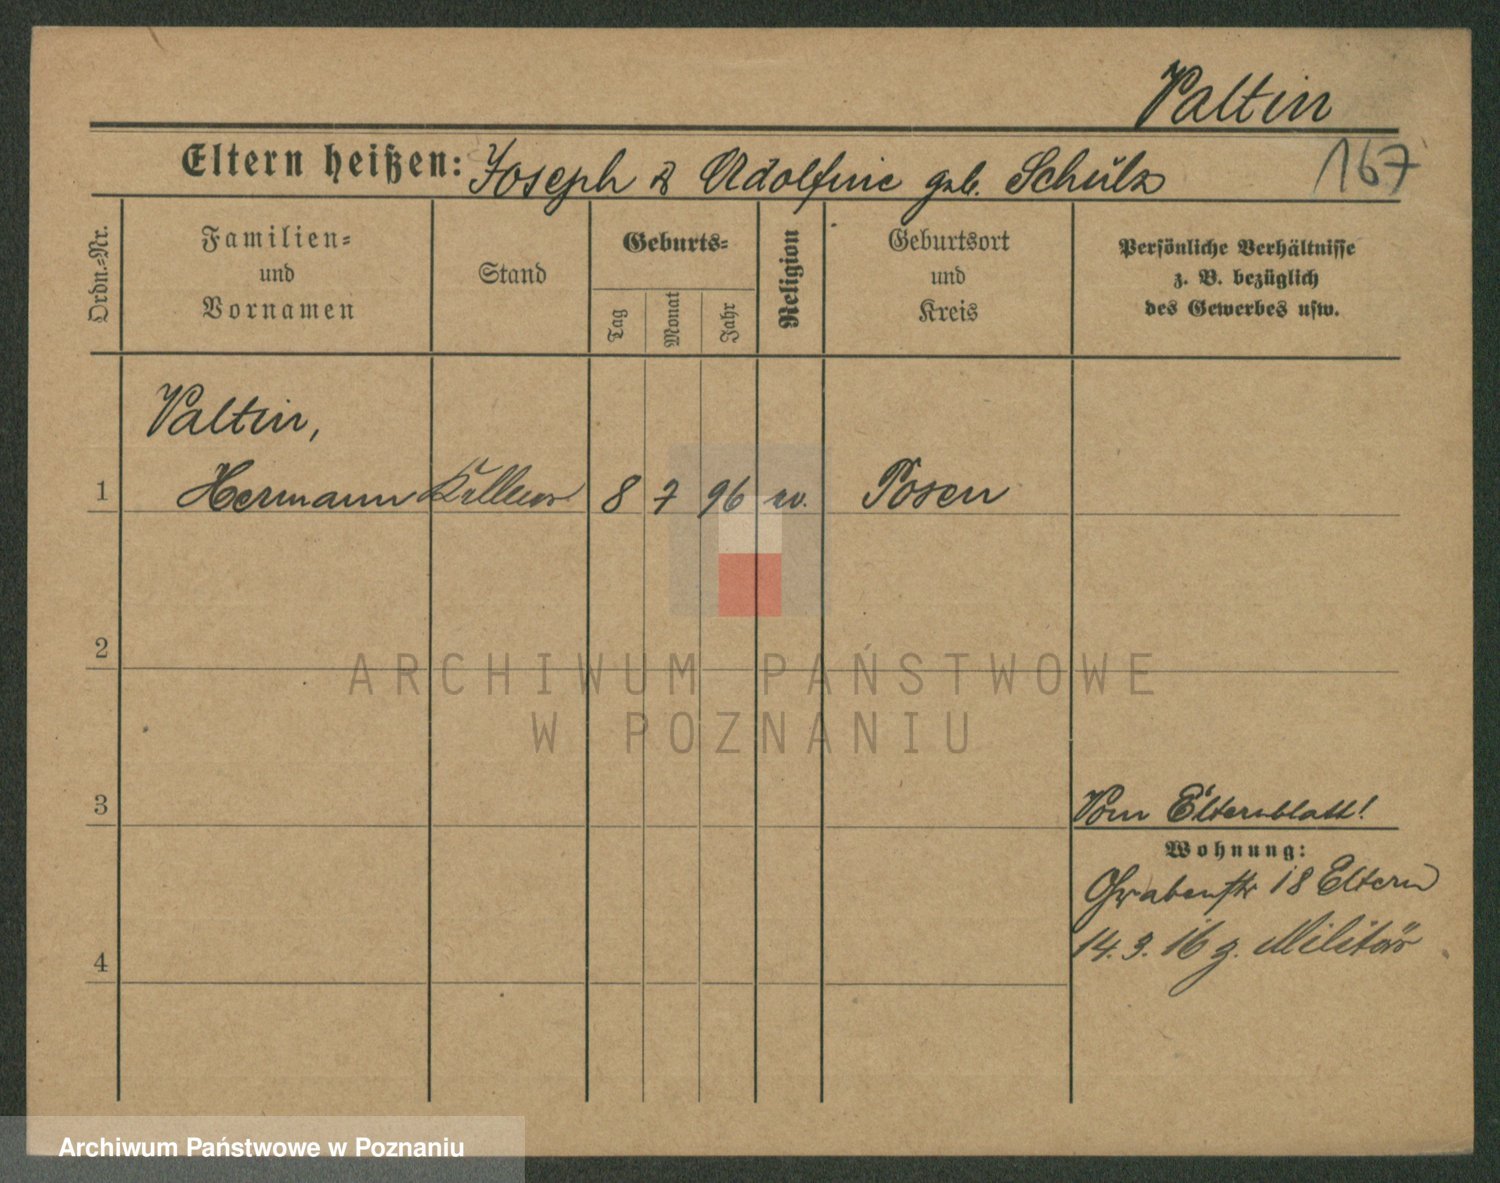 Valtin
167
Eltern heißen: Joseph & Adolfine geb. Schulz
Ordn.-Nr.
Familien-
und
Vornamen
Stand
Geburts-
Tag
Monat
Jahr
Religion
Geburtsort
und
Kreis
Persönliche Verhältnisse
z. B. bezüglich
des Gewerbes usw.
Valtin,
1 Hermann Kellner 8 7 96 ev. Posen
2
3
Vom Elternblatt!
Wohnung:
Grabenstr 18 Eltern
14. 3. 16 z. Militär
4
ARCHIWUM PAŃSTWOWE
W POZNANIU
Archiwum Państwowe w Poznaniu